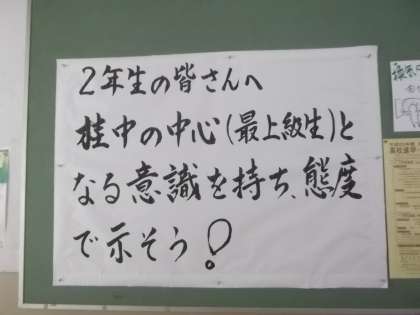 2年生の皆さんへ
桂中の中心(最上級生)と
なる意識を持ち、態度
で示そう!